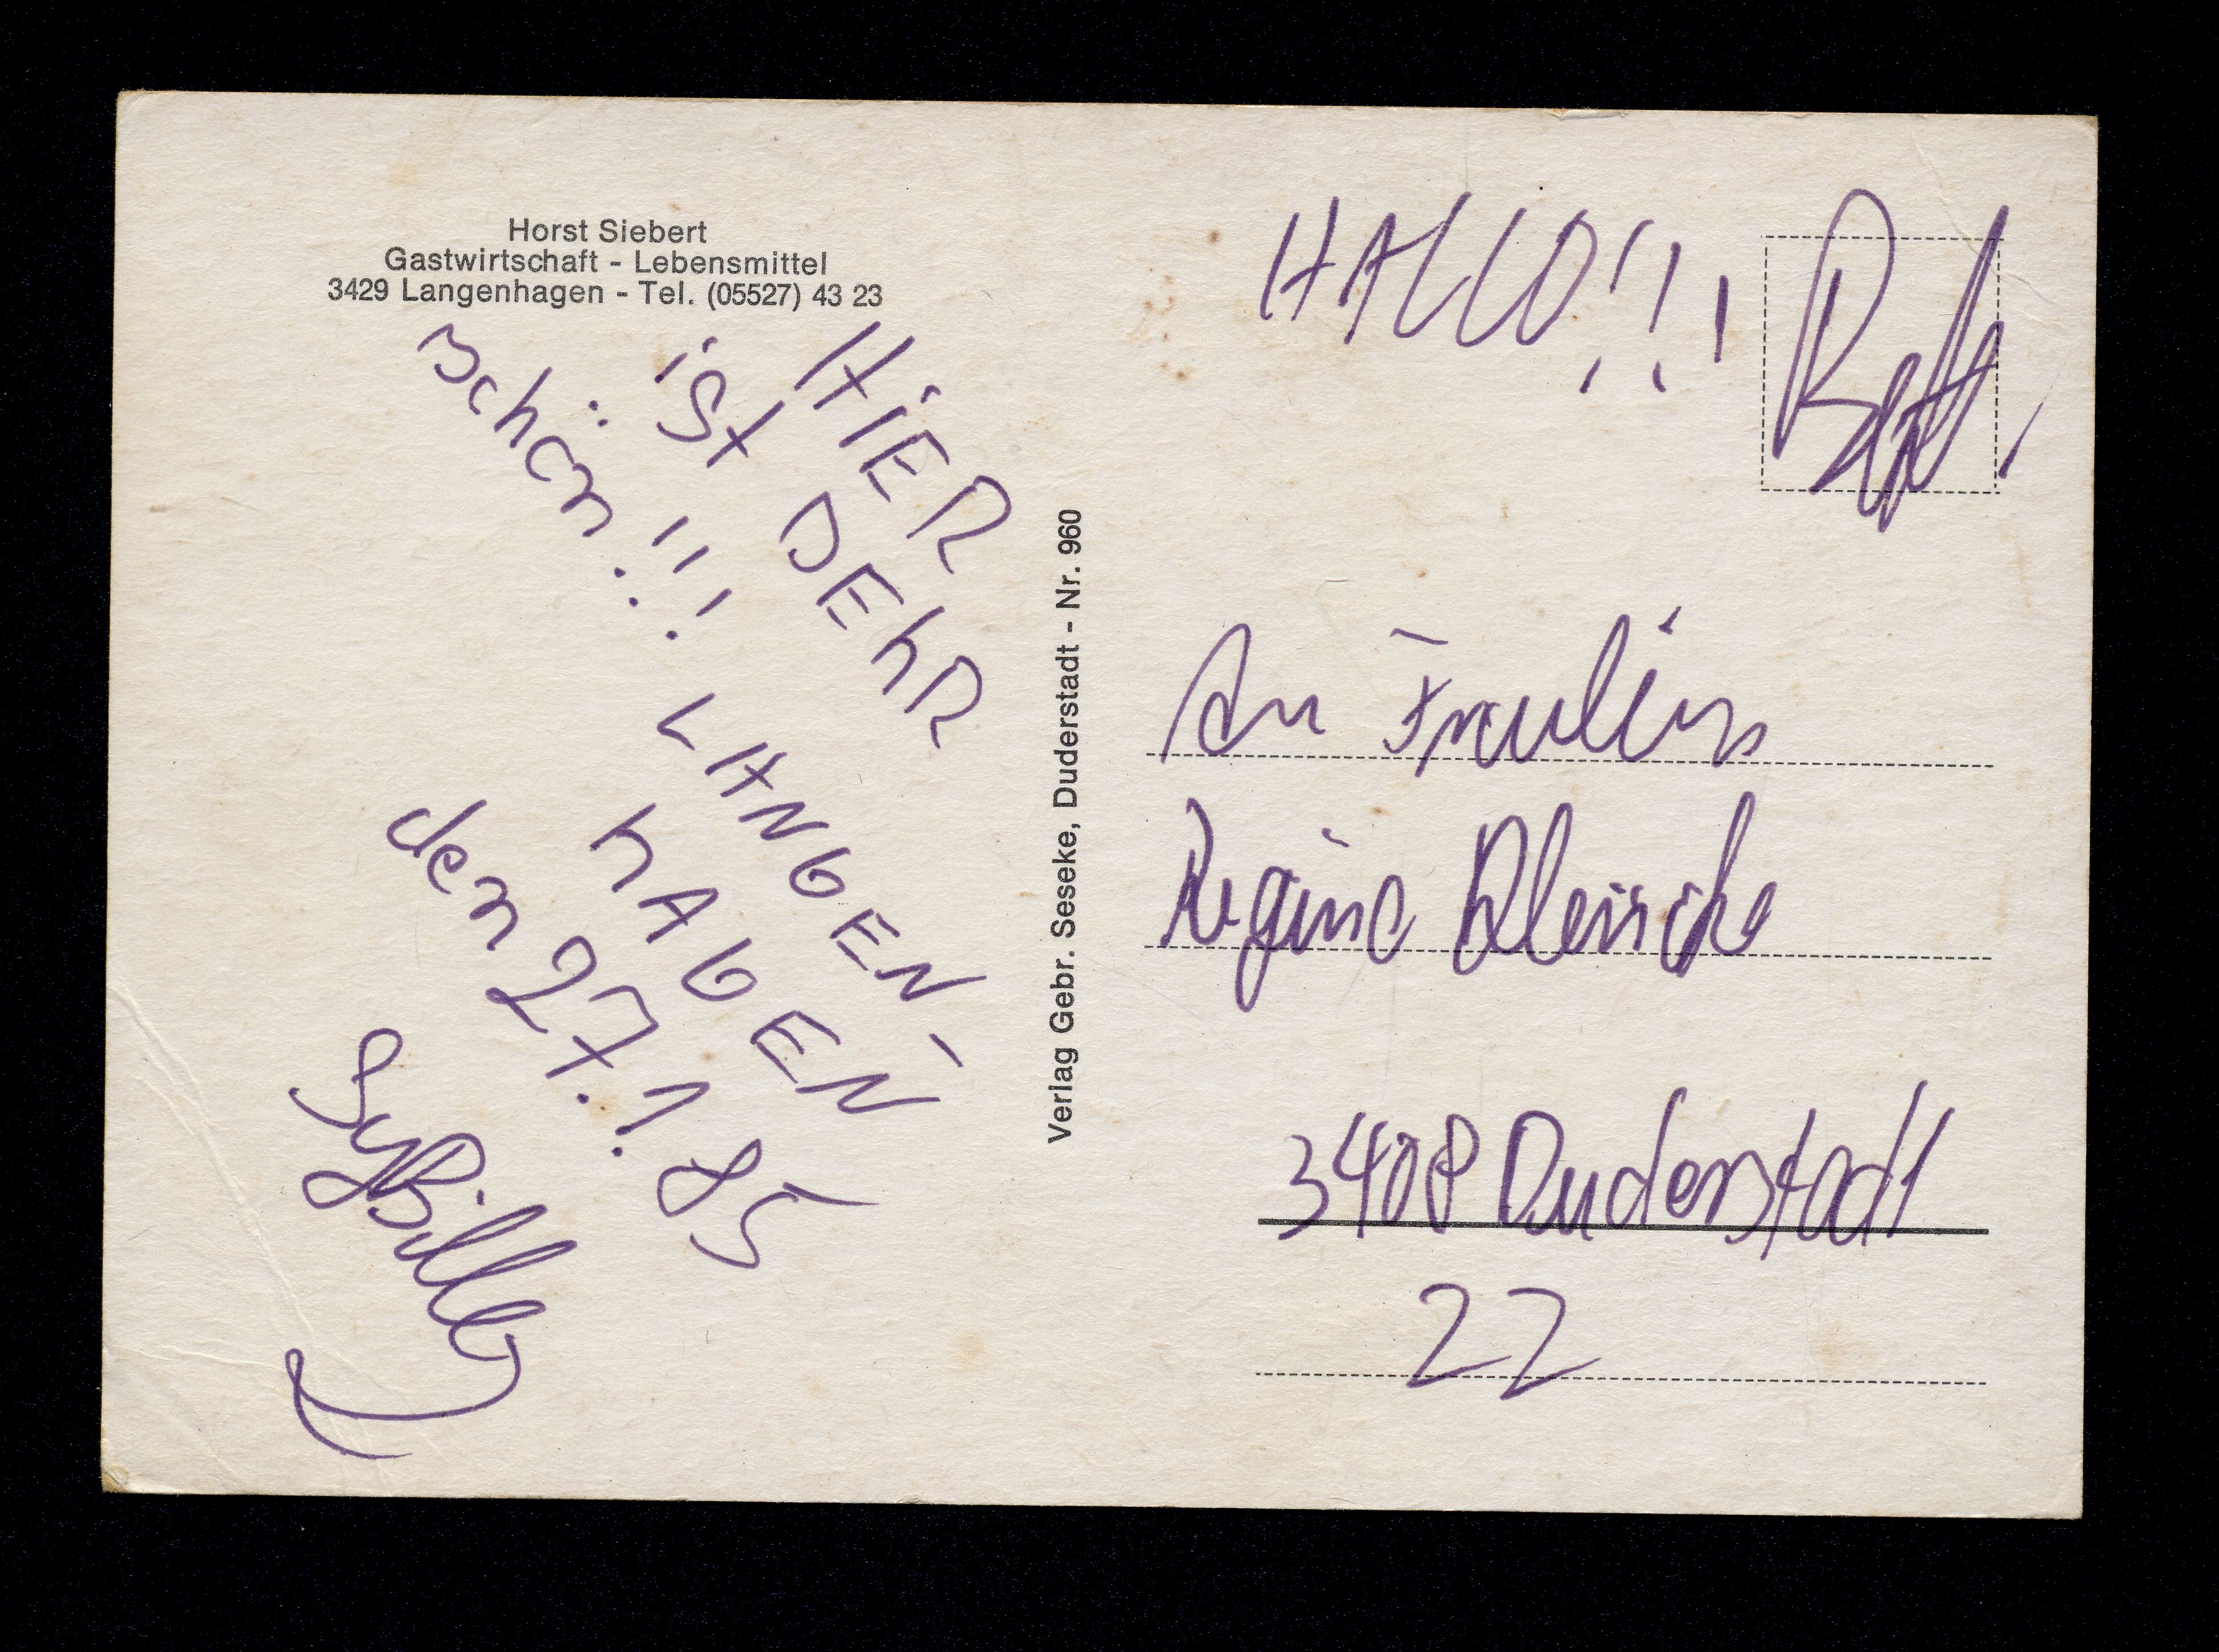 Horst Siebert
Gastwirtschaft - Lebensmittel
3429 Langenhagen - Tel. (05527) 43 23
HiER
ist DEhR
schön!!!
LANGEN-
hAGEN
den 27.1.85
SyBille
Verlag Gebr. Seseke, Duderstadt - Nr. 960
HALLO!!!
An Fraulin
Regina
3408 Duderstadt
22